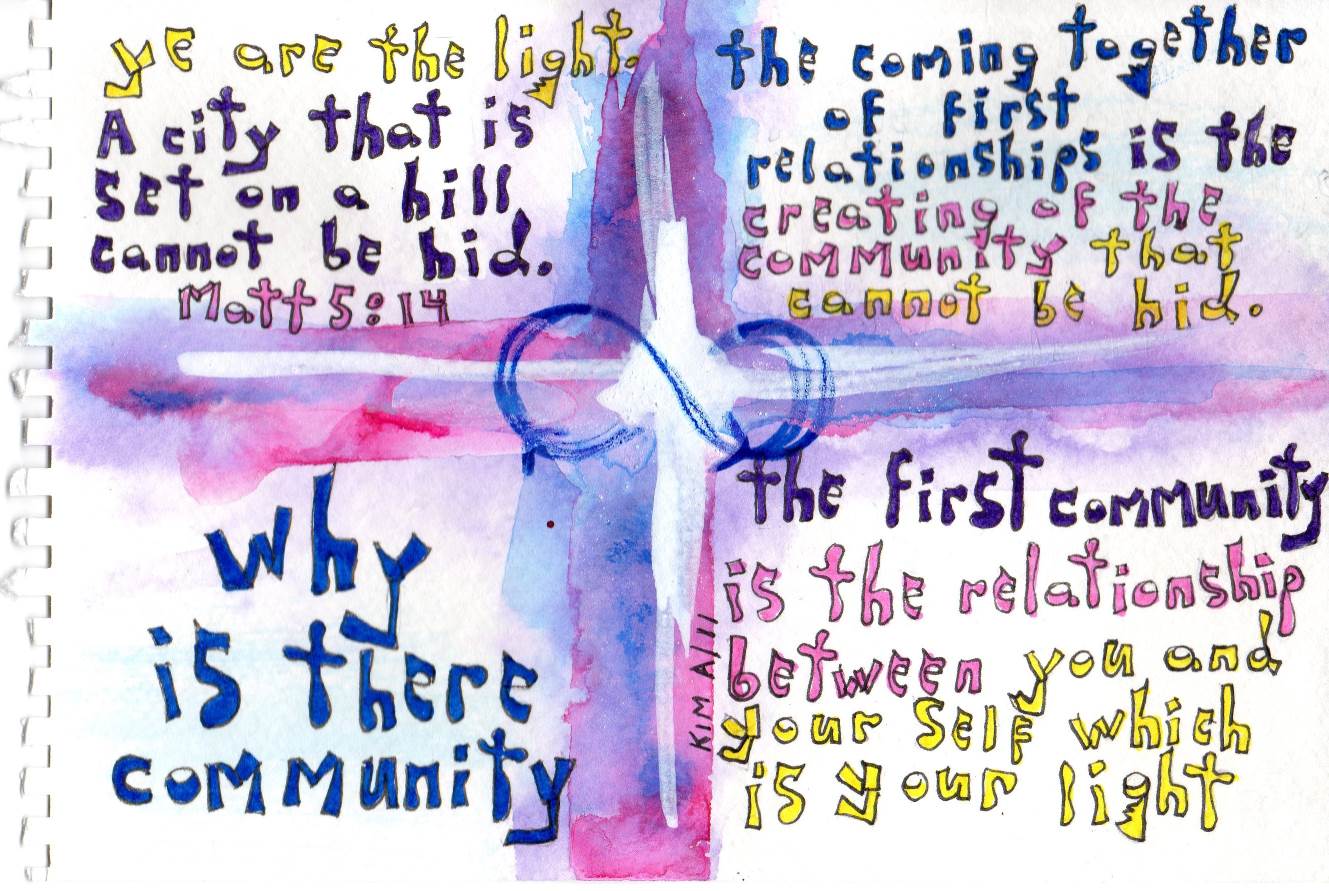 ye are the light.
A city that is
set on a hill
cannot be hid.
Matt 5:14
the coming together
of first
relationships is the
creating of the
community that
cannot be hid.
why
is there
community
the first community
is the relationship
between you and
your self which
is your light
KIM A/11